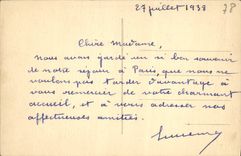 27 juillet 1938
78
Chère Madame,
Nous avons gardé un si bon souvenir
de notre séjour à Paris, que nous ne
voulons pas tarder davantage à
vous remercier de votre charmant
accueil, et à vous adresser nos
affectueuses amitiés.